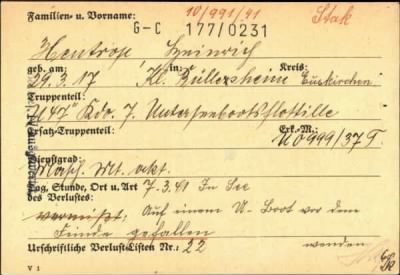 Familien- u. Vorname: 10/991/41 Stak
G-C 177/0231
Hentrop Heinrich
geb. am: in: Kreis:
29.3.17 Kl. Büllesheim Euskirchen
Truppenteil:
"U 47" Kdo. 7. Unterseebootsflottille
Ersatz-Truppenteil: Erk.-M.:
N.O. 999/37 T.
Dienstgrad:
Masch. Mt. akt.
Tag, Stunde, Ort u. Art 7.3.41 In See
des Verlustes:
vermißt: Auf einem U-Boot vor dem
Feinde gefallen
Urschriftliche Verlust-Listen Nr.: 22 werden
V 1